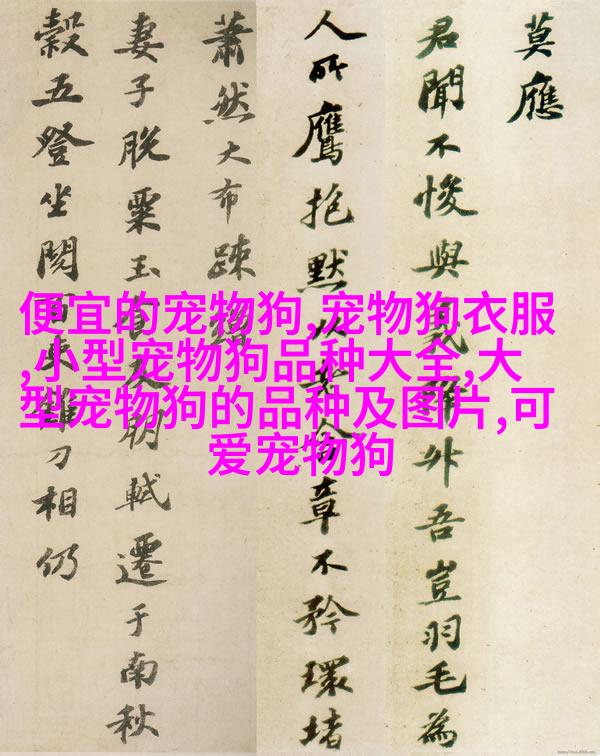 莫應
君聞不悛與雖外吾豈羽毛為
人所鷹抱默以章不矜環堵
蕭然大布疎
妻子脫粟玉及明軾遷于南秋
穀五登坐閱百車刀相仍
便宜的宠物狗,宠物狗衣服
,小型宠物狗品种大全,大
型宠物狗的品种及图片,可
爱宠物狗